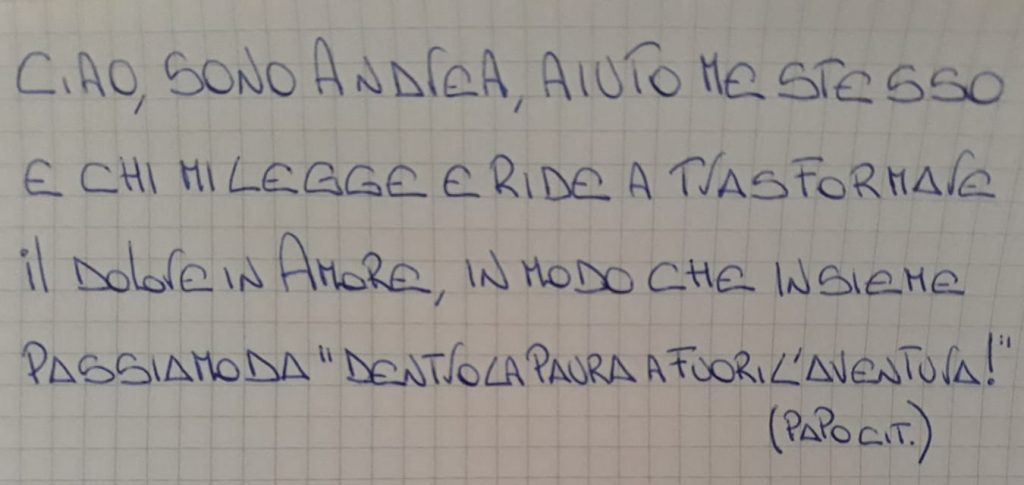 CIAO, SONO ANDREA, AIUTO ME STESSO
E CHI MI LEGGE E RIDE A TRASFORMARE
il DoloRE IN AMORE, IN MODO CHE INSIEME
PASSIAMO DA "DENTRO LA PAURA A FUORI L'AVENTURA!"
(PAPO CIT.)